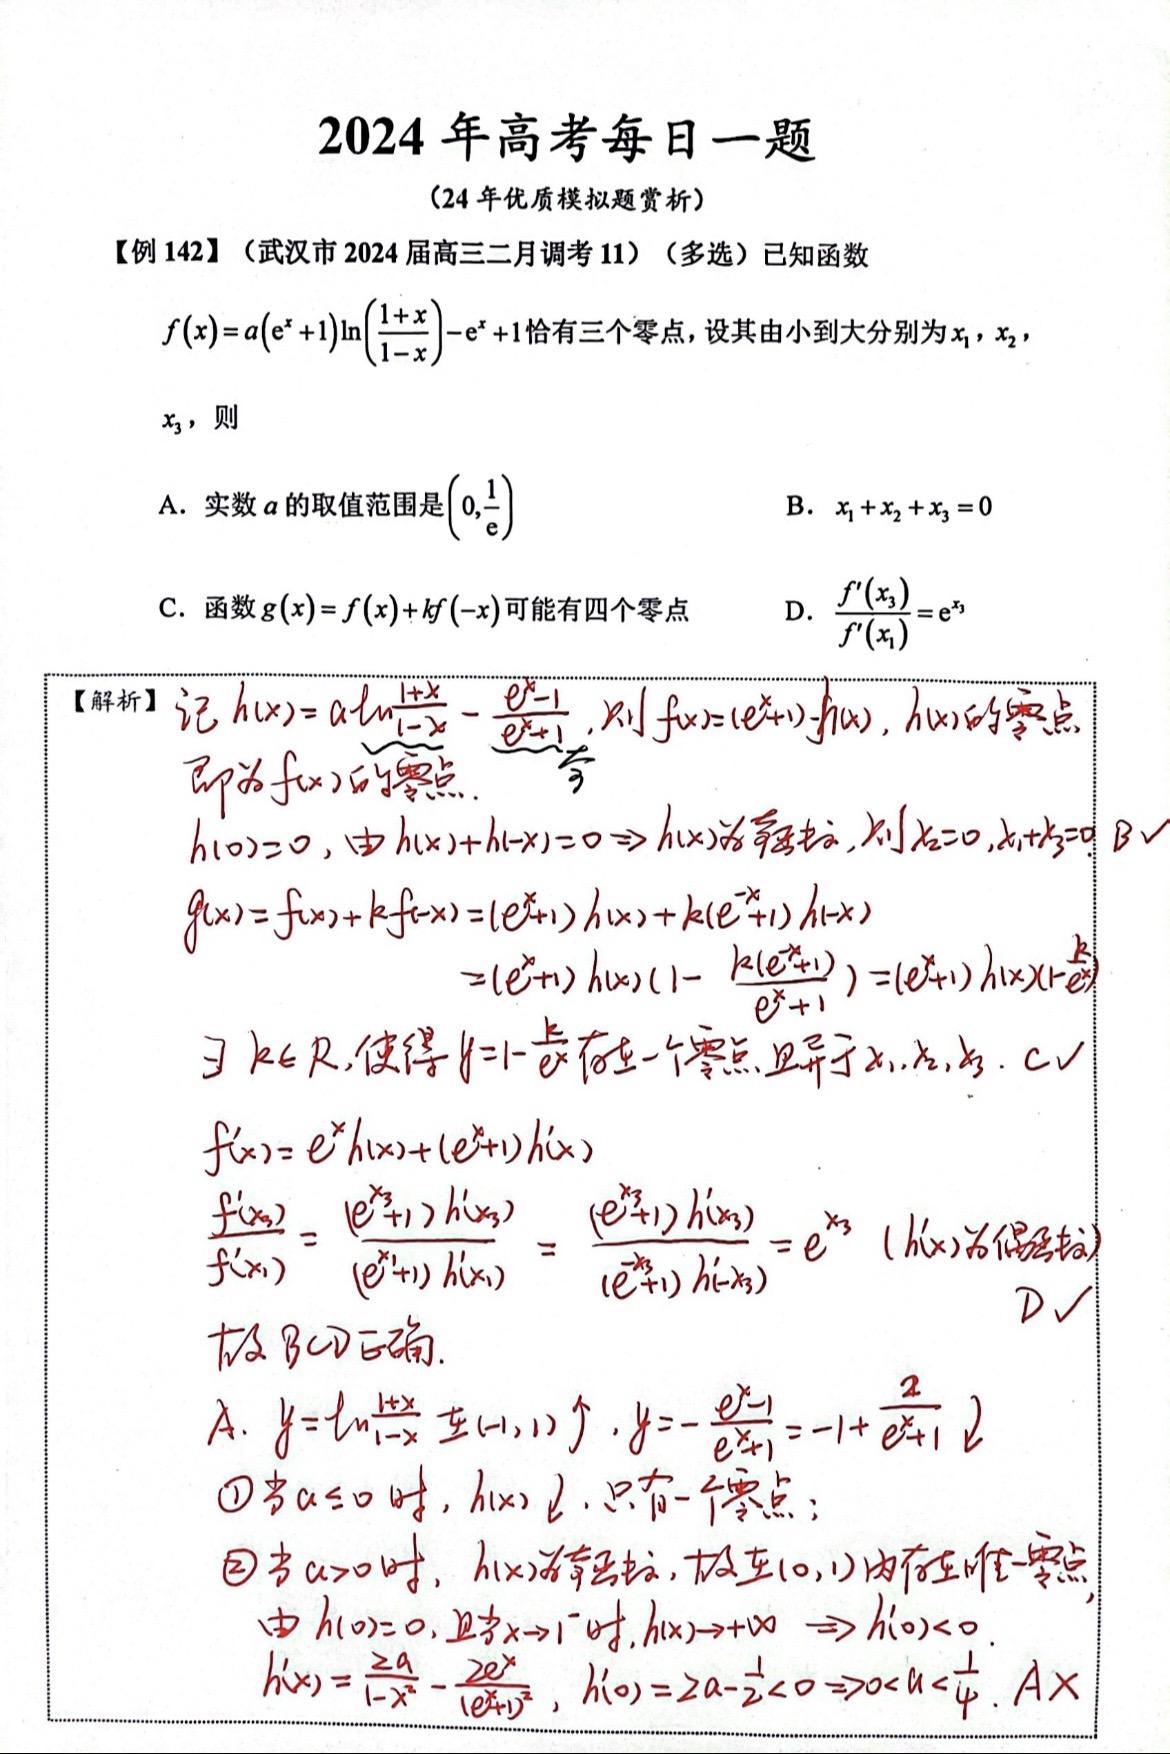 2024 年高考每日一题
（24 年优质模拟题赏析）
【例 142】（武汉市 2024 届高三二月调考 11）（多选）已知函数
f(x)=a(e^x+1)ln((1+x)/(1-x))-e^x+1恰有三个零点，设其由小到大分别为x₁，x₂，
x₃，则
A. 实数 a 的取值范围是(0,1/e)
B. x₁+x₂+x₃=0
C. 函数g(x)=f(x)+kf(-x)可能有四个零点
D. f'(x₃)/f'(x₁)=e^{x₃}
【解析】记 h(x)=a ln (1+x)/(1-x) - (e^x-1)/(e^x+1), 则 f(x)=(e^x+1)·h(x), h(x)的零点
奇
即为f(x)的零点.
h(0)=0, 由 h(x)+h(-x)=0 ⇒ h(x)为奇函数, 则 x₂=0, x₁+x₃=0. B✓
g(x)=f(x)+kf(-x)=(e^x+1)h(x)+k(e^{-x}+1)h(-x)
=(e^x+1)h(x)(1- k(e^{-x}+1)/(e^x+1))=(e^x+1)h(x)(1-k/e^x)
∃ k∈R, 使得 y=1-k/e^x 存在一个零点且异于 x₁, x₂, x₃. C✓
f'(x)=e^x h(x)+(e^x+1)h'(x)
f'(x₃)/f'(x₁) = (e^{x₃}+1)h'(x₃)/(e^{x₁}+1)h'(x₁) = (e^{x₃}+1)h'(x₃)/(e^{-x₃}+1)h'(-x₃) = e^{x₃} (h'(x)为偶函数)
D✓
故BCD正确.
A. y=ln (1+x)/(1-x) 在(-1,1)↑, y=-(e^x-1)/(e^x+1)=-1+2/(e^x+1)↓
①当a≤0时, h(x)↓, 只有一个零点;
②当a>0时, h(x)为奇函数, 故在(0,1)内存在唯一零点,
由 h(0)=0, 且当x→1⁻时, h(x)→+∞ ⇒ h'(0)<0.
h'(x)=2a/(1-x²) - 2e^x/(e^x+1)², h'(0)=2a-1/2<0⇒0<a<1/4. A×